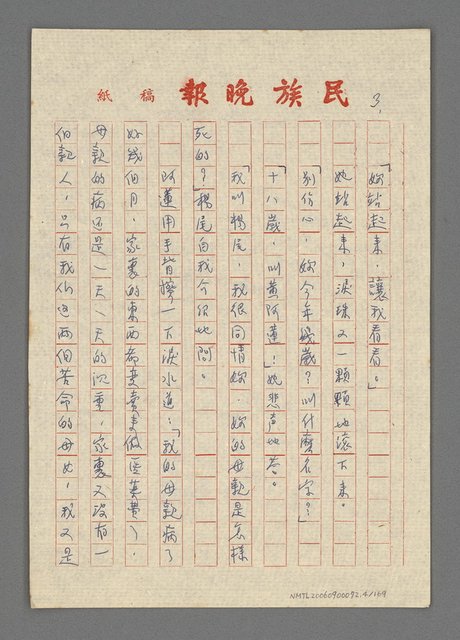 民族晚報 稿紙
3.
「妳站起來，讓我看看。」
她站起來，淚珠又一顆顆地滾下來。
「別傷心，妳今年幾歲？叫什麼名字？」
「十八歲，叫黃阿蓮！」她悲声地答。
「我叫楊尾，我很同情妳，妳的母親是怎樣
死的？」楊尾自我介紹地問。
阿蓮用手背擦一下淚水道：「我的母親病了
好幾個月，家裏的東西都變賣做医藥費了，
母親的病还是一天一天的沉重，家裏又沒有一
個親人，只有我们這兩個苦命的母女，我又是
NMTL20060900092.4/169